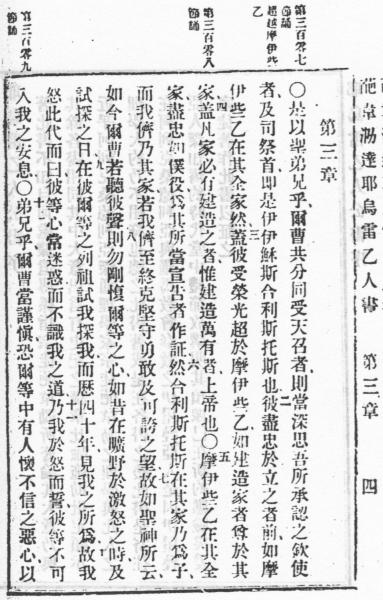 葩韋泐達耶烏雷乙人書 第三章 四
第三百零七
節誦
超越摩伊些
乙
第三百零八
節誦
第三百零九
節誦
第三章
〇是以聖弟兄乎、爾曹共分同受天召者、則當深思吾所承認之欽使
者及司祭首、即是伊伊穌斯合利斯托斯也、彼盡忠於立之者、前如摩
伊些乙在其全家然、蓋彼受榮光超於摩伊些乙、如建造家者尊於其
家、蓋凡家必有建造之者、惟建造萬有者、上帝也〇摩伊些乙在其全
家盡忠如僕役、爲其所當宣告者作証、然合利斯托斯在其家乃爲子、
而我儕乃其家、若我儕至終克堅守勇敢及可誇之望、故如聖神所云、
如今爾曹若聽彼聲、則勿剛愎爾等之心、如昔在曠野於激怒之時及
試探之日、在彼爾等之列祖試我探我、而歷四十年見我之所爲、故我
怒此代而曰、彼等心當迷惑而不識我之道、乃我於怒而誓、彼等不可
入我之安息〇弟兄乎、爾曹當謹慎、恐爾等中有人懷不信之惡心、以